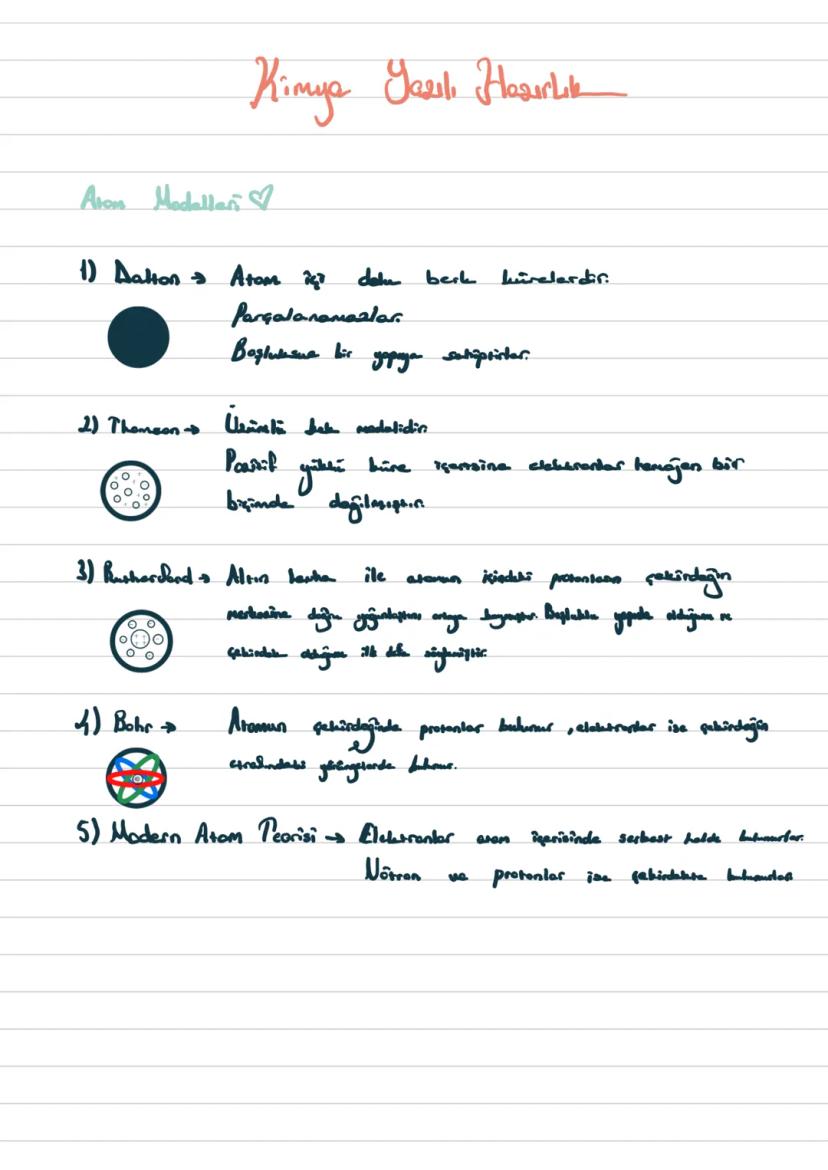 Kimya Yazılı Hazırlık
Atom Modelleri ♡
1) Dalton → Atom içi dolu berk kürelerdir.
Parçalanamazlar.
Boşluksuz bir yapıya sahiptirler.
2) Thomson → Üzümlü kek modelidir.
Pozitif yüklü küre içerisine elektronlar homojen bir
biçimde dağılmıştır.
3) Rutherford → Altın levha ile atomun içindeki protonların çekirdeğin
merkezine doğru yığınlaştığını ortaya koymuştur. Boşluklu yapıda olduğunu ve
çekirdek olduğunu ilk defa söylemiştir.
4) Bohr → Atomun çekirdeğinde protonlar bulunur, elektronlar ise çekirdeğin
etrafındaki yörüngelerde bulunur.
5) Modern Atom Teorisi → Elektronlar atom içerisinde serbest halde bulunurlar.
Nötron ve protonlar ise çekirdekte bulunurlar